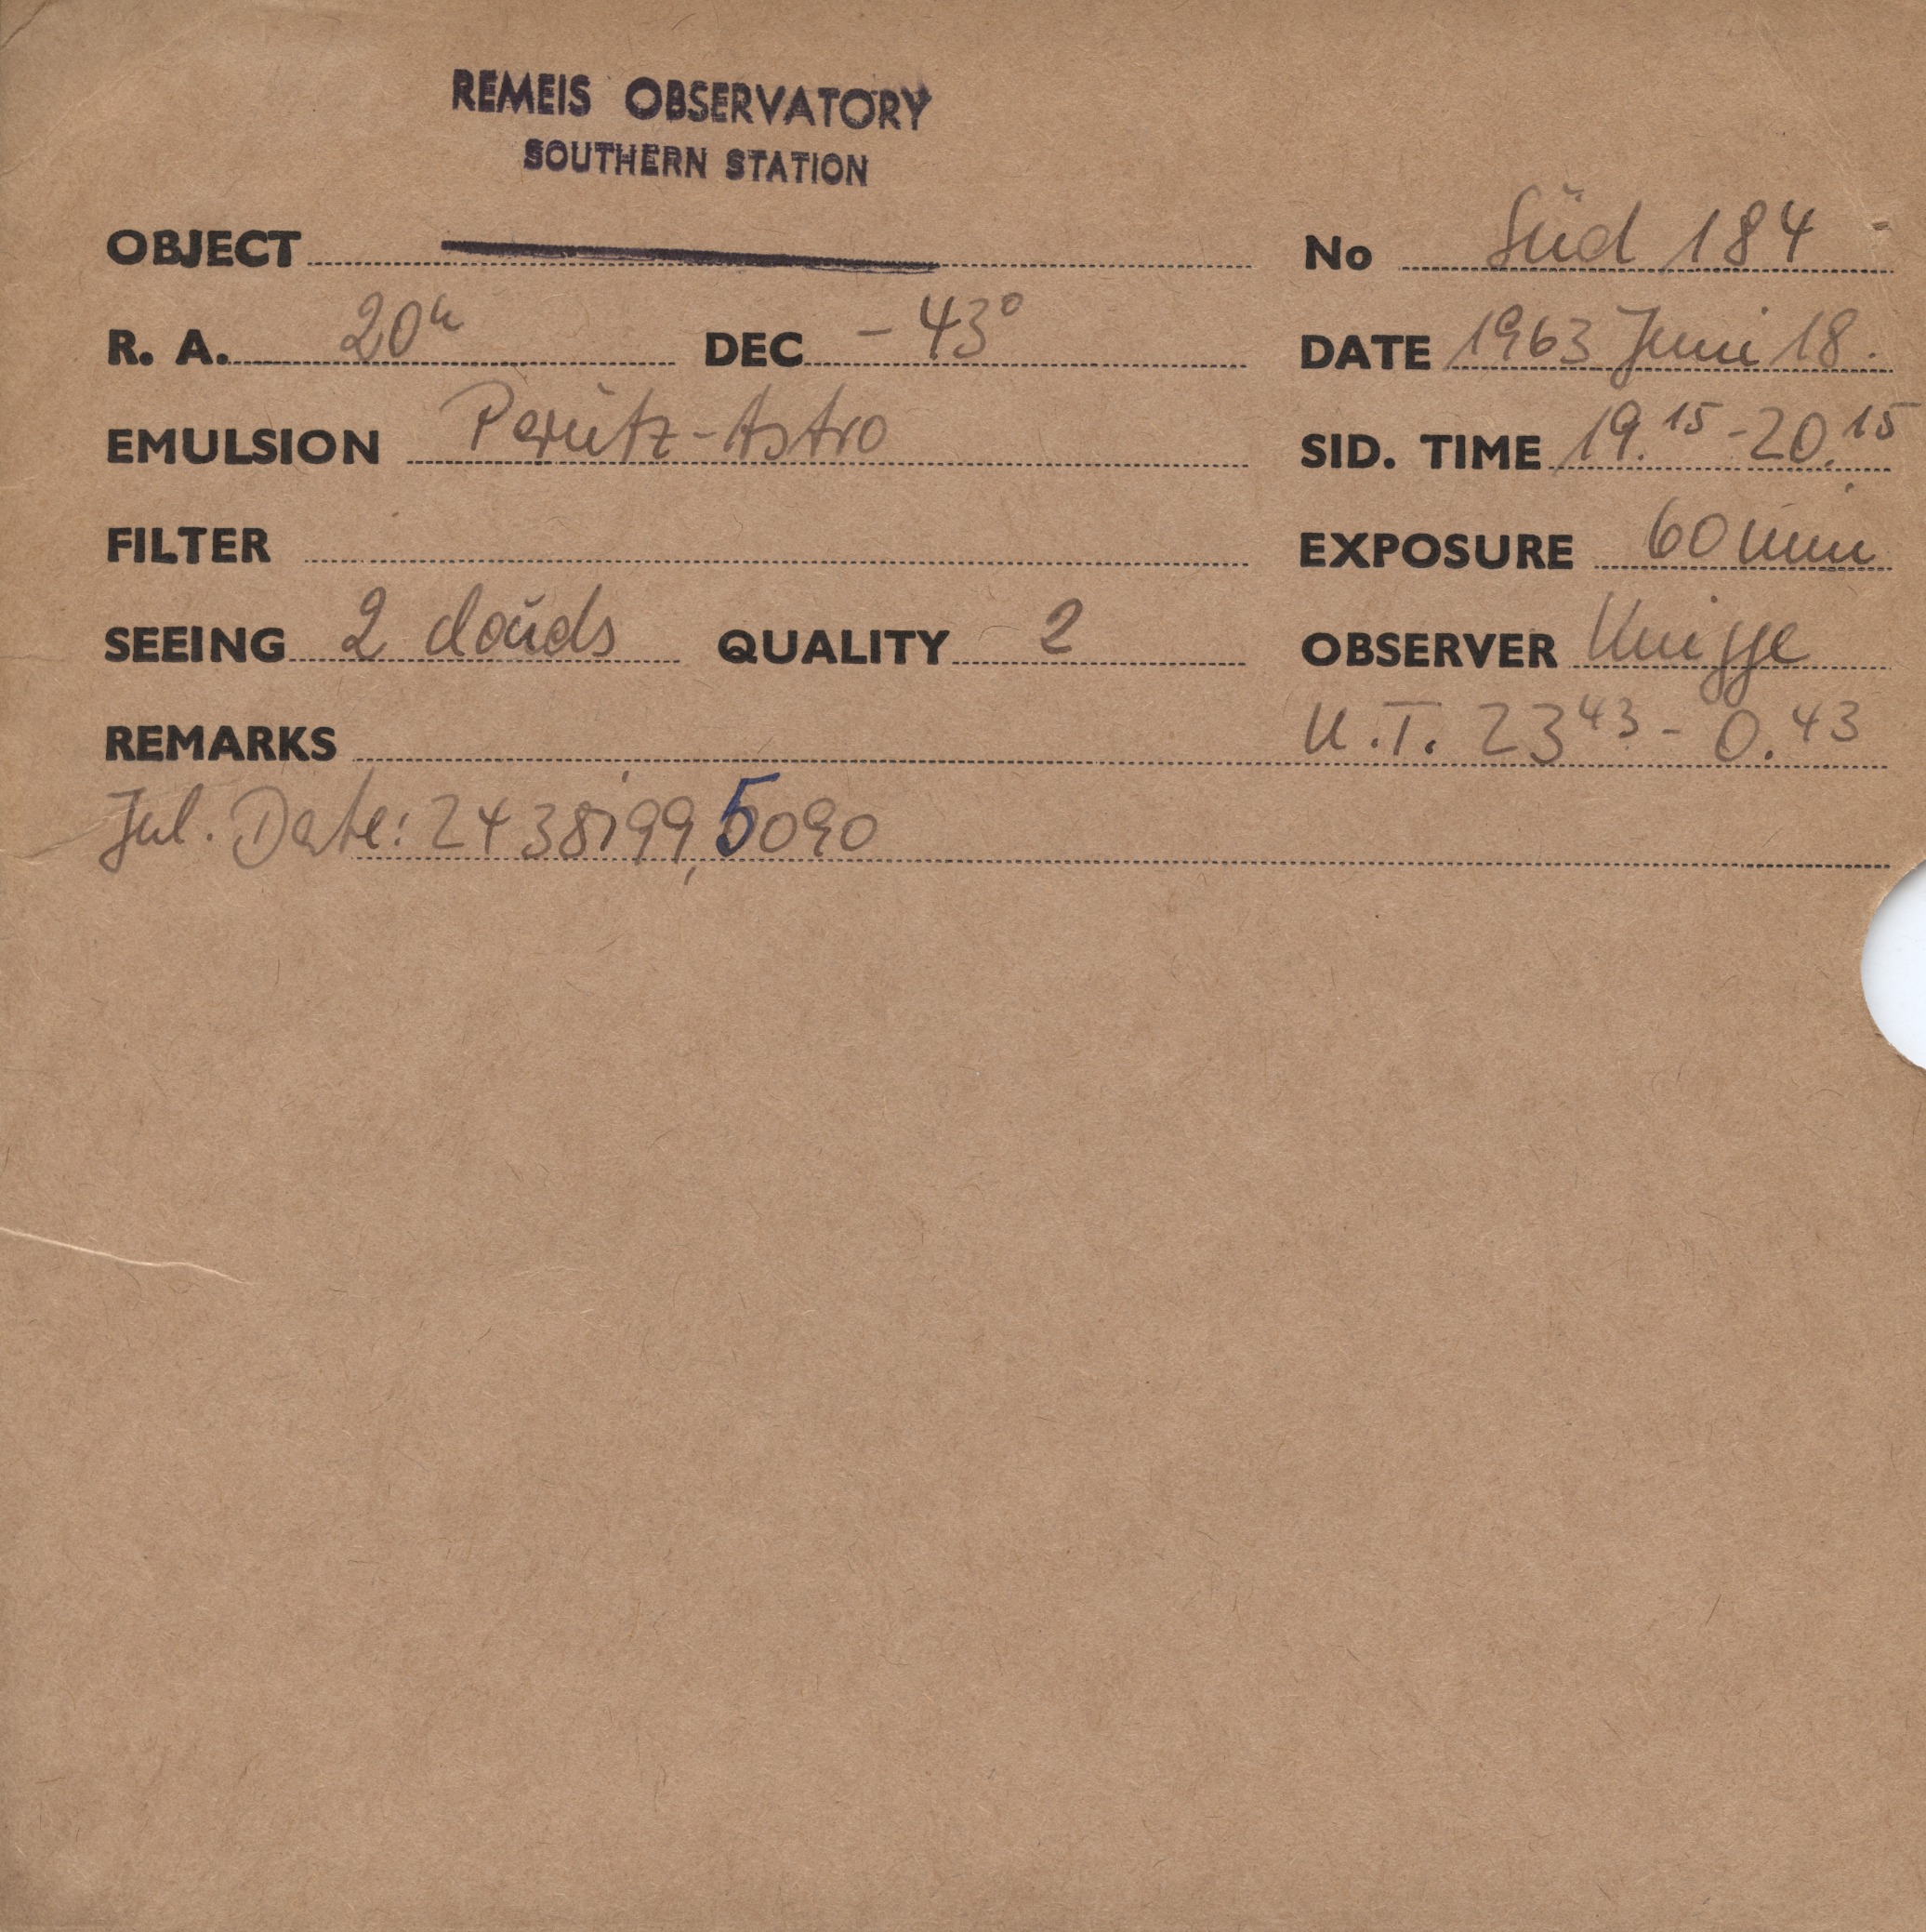 REMEIS OBSERVATORY
SOUTHERN STATION
OBJECT No Süd 184
R. A. 20h DEC - 43° DATE 1963 Juni 18.
EMULSION Perutz-Astro SID. TIME 19.15 - 20.15
FILTER EXPOSURE 60 min
SEEING 2 clouds QUALITY 2 OBSERVER Knigge
REMARKS U.T. 23 43 - 0.43
Jul. Date: 2438199,5090